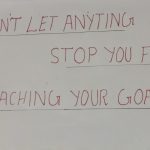 N'T LET ANYTING
STOP YOU F
ACHING YOUR GOA